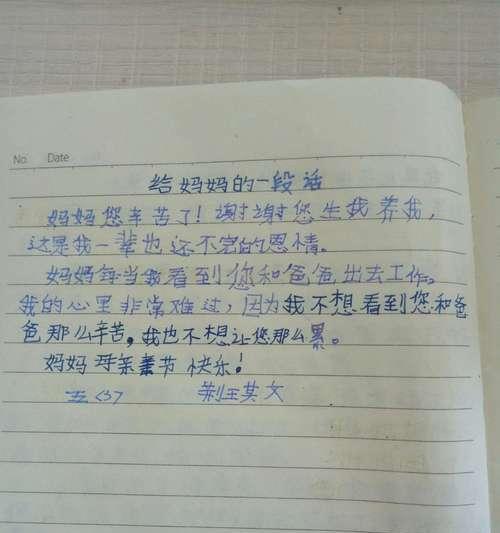 No. Date
给妈妈的一段话
妈妈您辛苦了！谢谢您生我养我，
这是我一辈也还不完的恩情。
妈妈每当我看到您和爸爸出去工作。
我的心里非常难过，因为我不想看到您和爸
爸那么辛苦，我也不想让您那么累。
妈妈母亲节快乐！
五<3>